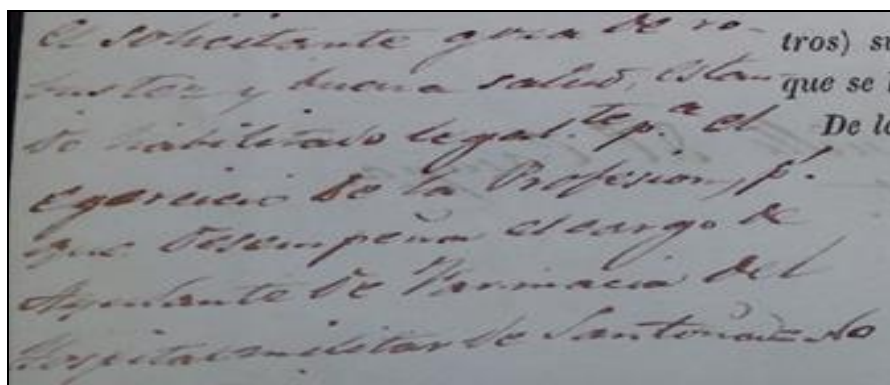 el solicitante goza de ro-
bustez y buena salud, estan
do habilitado legal.te p.a el
egercicio de la Profesion, p.r
que desempeña el cargo de
Ayudante de Farmacia del
Hospital militar de Santoña
tros) su
que se
De lo